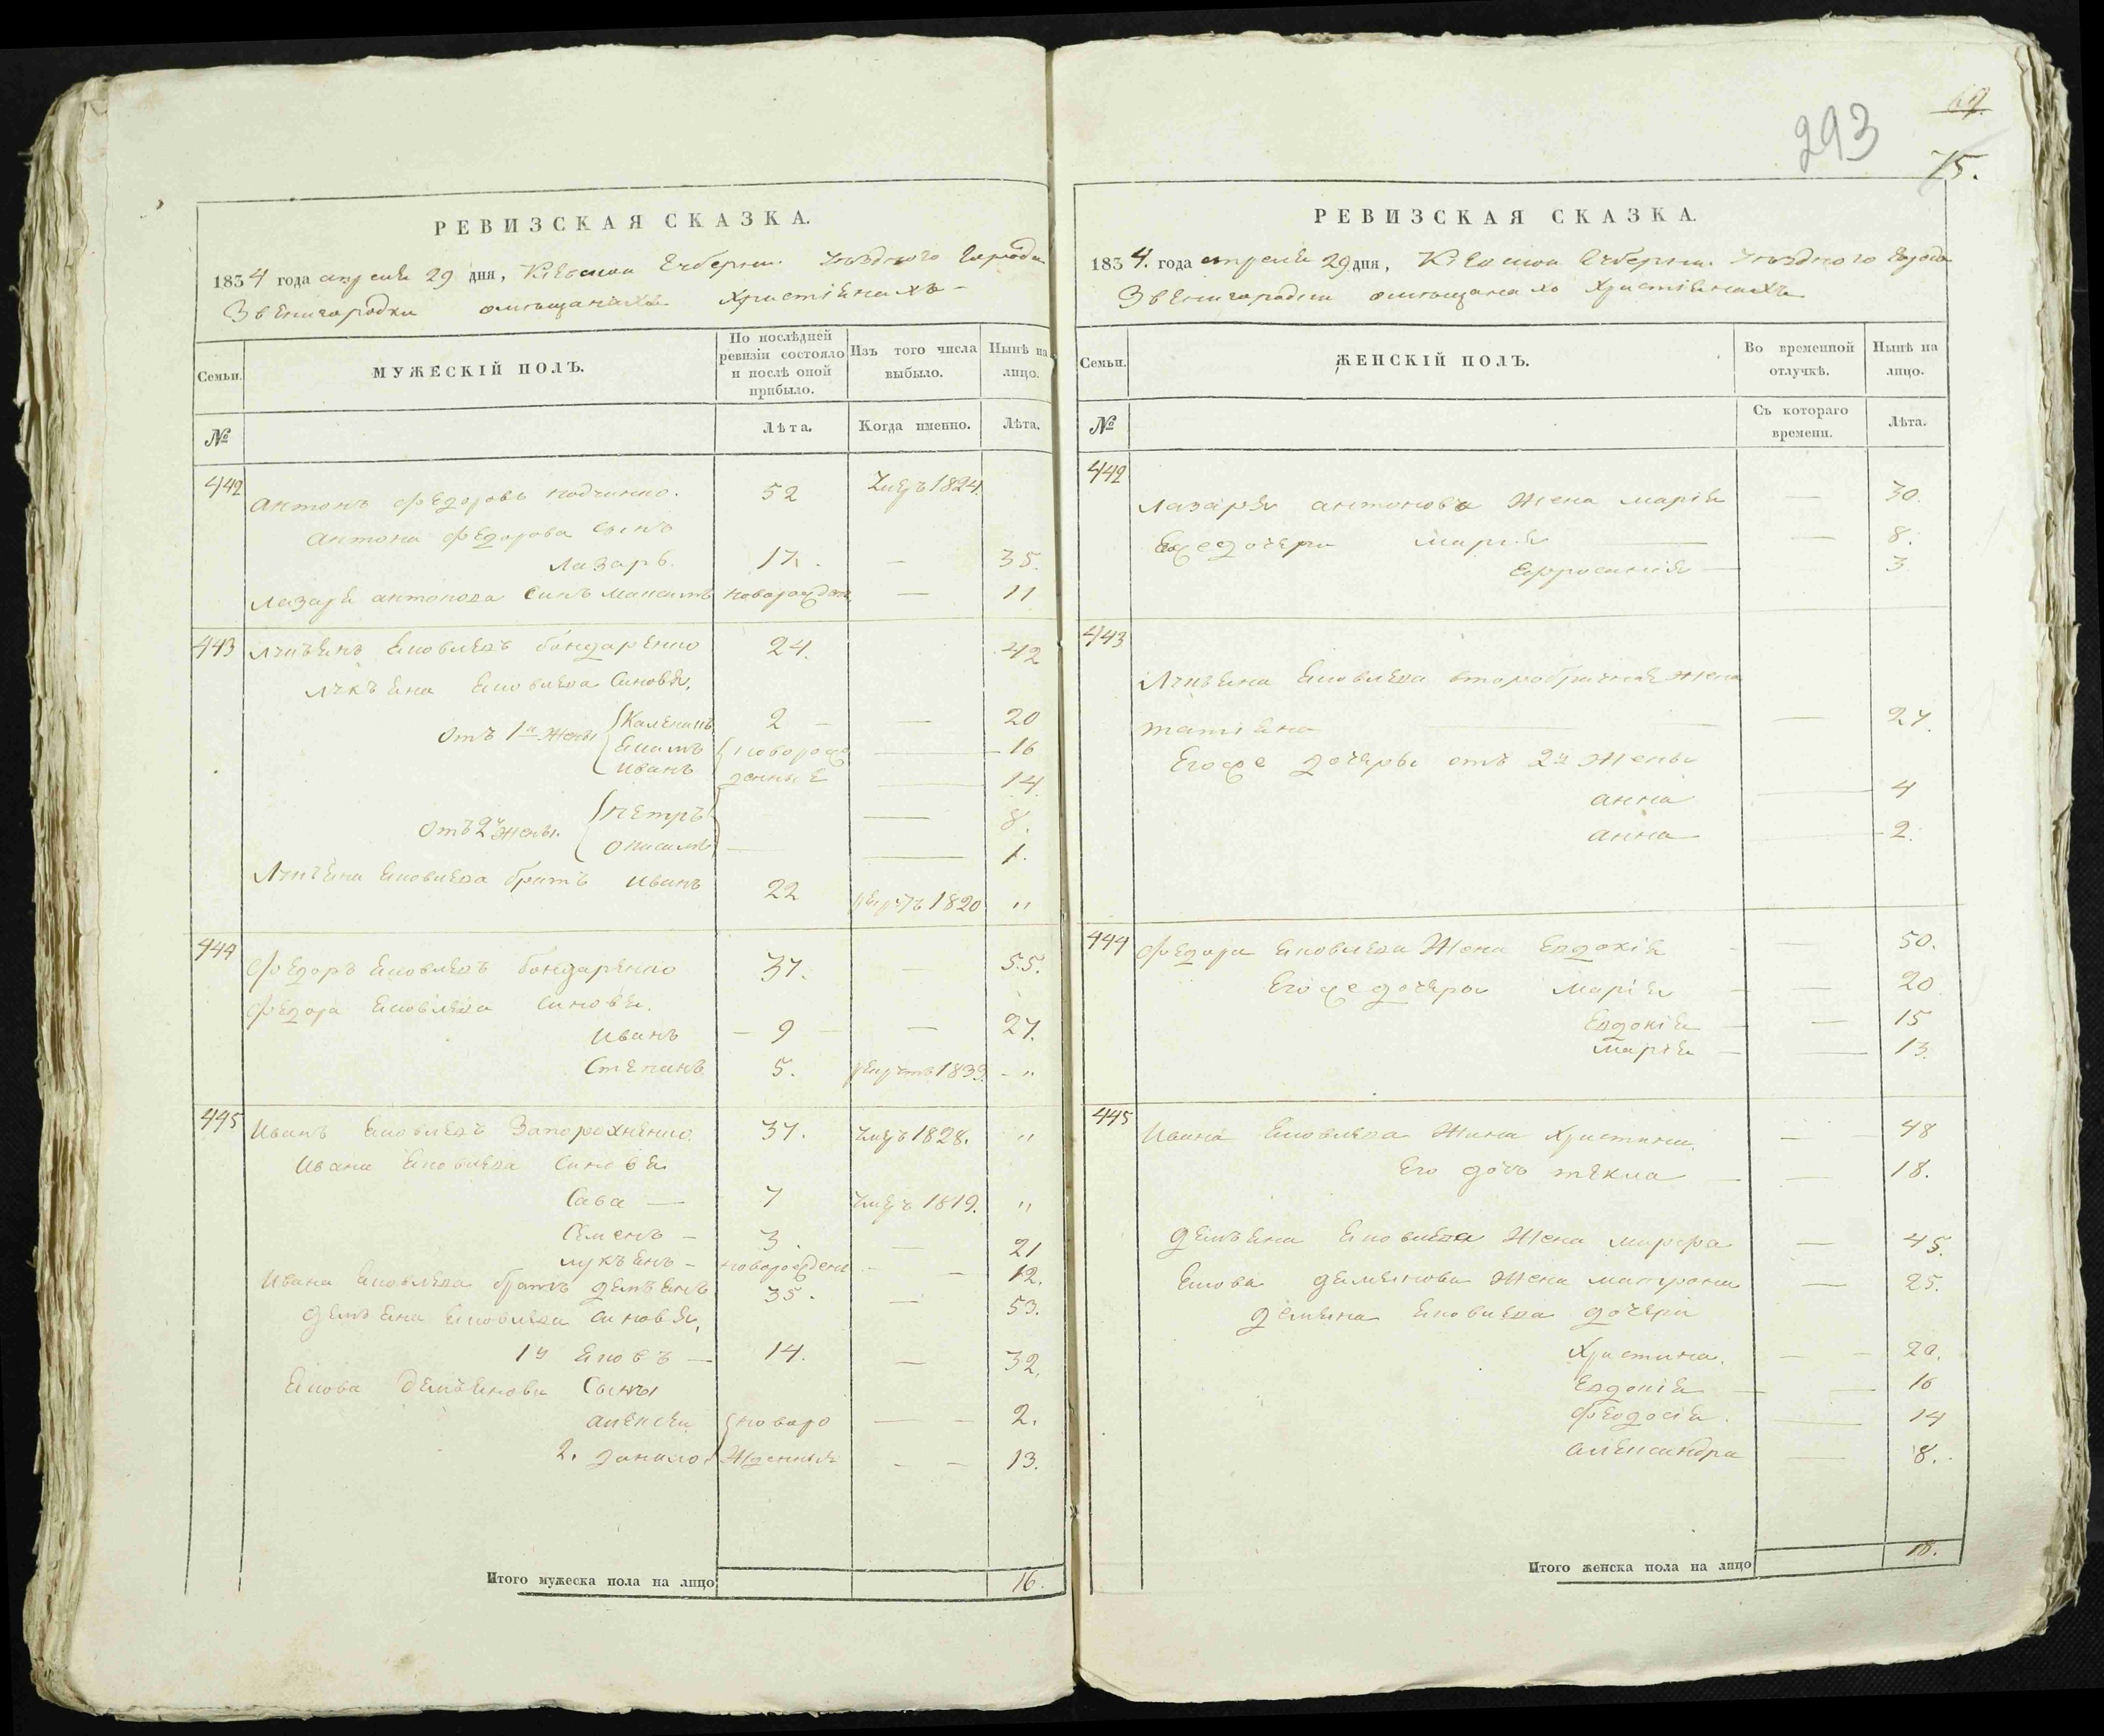 293
69
75.
РЕВИЗСКАЯ СКАЗКА.
1834 года апреля 29 дня, Кіевской Губерніи Уѣзднаго Города
Звенигородки омѣщанахъ христіянахъ
Семьи.
МУЖЕСКІЙ ПОЛЪ.
По послѣдней ревизіи состояло и послѣ оной прибыло.
Изъ того числа выбыло.
Нынѣ на лицо.
№
Лѣта.
Когда именно.
Лѣта.
442 Антонъ Федоровъ 52 1824.
Антона Федорова сынъ
Лазарь. 17. — 35.
Лазаря Антонова Синъ Максимъ новорожден. — 11
443 Лукъянъ Яковлевъ Бондаренко 24. 42
Лукъяна Яковлева Синовя,
Отъ 1й жены Каленикъ 2 — — 20
Якимъ новорож — 16
Иванъ денные — 14.
Отъ 2й жены. Петръ — 8.
Онисимъ — — 1.
Лукъяна Яковлева братъ Иванъ 22 1820 "
444 Федоръ Яковлевъ Бондаренко 37. — 55.
Федора Яковлева синовя.
Иванъ — 9 — — 27.
Степанъ 5. 1833. - "
445 Иванъ Яковлевъ Запорожненко 37. 1828. "
Ивана Яковлева синовя
Сава — 7 1819. "
Семенъ — 3. — 21
лукъянъ — новорожден — 12.
Ивана Яковлева братъ Демъянъ 35. — 53.
Демъяна Яковлева синовя,
1й Яковъ — 14. — 32.
Якова Демъянова Сыны
Алексей новоро — — 2.
2. Данило. жденныя — — 13.
Итого мужеска пола на лицо 16.
РЕВИЗСКАЯ СКАЗКА.
1834. года апреля 29 дня, Кіевской Губерніи Уѣзднаго Города
Звенигородки омѣщанахъ Христіянахъ
Семьи.
ЖЕНСКІЙ ПОЛЪ.
Во временной отлучкѣ.
Нынѣ на лицо.
№
Съ котораго времени.
Лѣта.
442
Лазаря Антонова Жена Марія — 30.
Егоже дочери Марія — 8.
Ефросинія — 3
443
Лукъяна Яковлева второбрачная жена
татіяна — 27.
Егоже дочери отъ 2й Жены
анна — 4
анна — 2.
444 Федора Яковлева Жена Евдокія — 50.
Егоже дочери Марія — — 20
Евдокія — — 15
Марія — — 13.
445
Ивана Яковлева Жина Христина. — 48
Его дочь текла — — 18.
Демъяна Яковлева Жена Марфа — 45.
Якова Демянова Жена Матрона — 25.
Демяна Яковлева дочери
Христина. — — 20.
Евдокія — — 16
Феодосія. — 14
Александра — 8.
Итого женска пола на лицо 18.